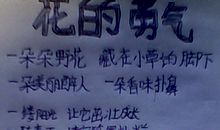 花的勇气
一朵朵野花 藏在小草的脚下
一朵美丽醉人 一朵香味扑鼻
一缕阳光 让它茁壮成长